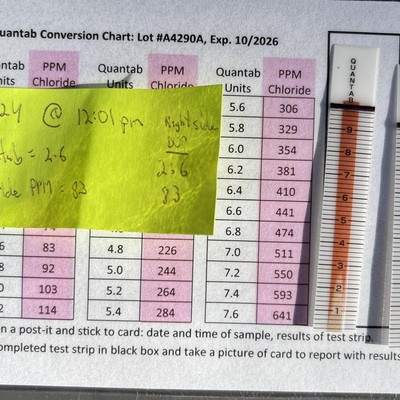 uantab Conversion Chart: Lot #A4290A, Exp. 10/2026
ntab PPM Quantab PPM Quantab PPM
nits Chloride Units Chloride Units Chloride
5.6 306
5.8 329
6.0 354
6.2 381
6.4 410
6.6 441
6.8 474
6 83 4.8 226 7.0 511
8 92 5.0 244 7.2 550
0 103 5.2 264 7.4 593
2 114 5.4 284 7.6 641
24 @ 12:01 pm
tab = 2.6
ide PPM = 83
Right side
2.6
83
QUANTAB
9
8
7
6
5
4
3
2
1
n a post-it and stick to card: date and time of sample, results of test strip.
ompleted test strip in black box and take a picture of card to report with results